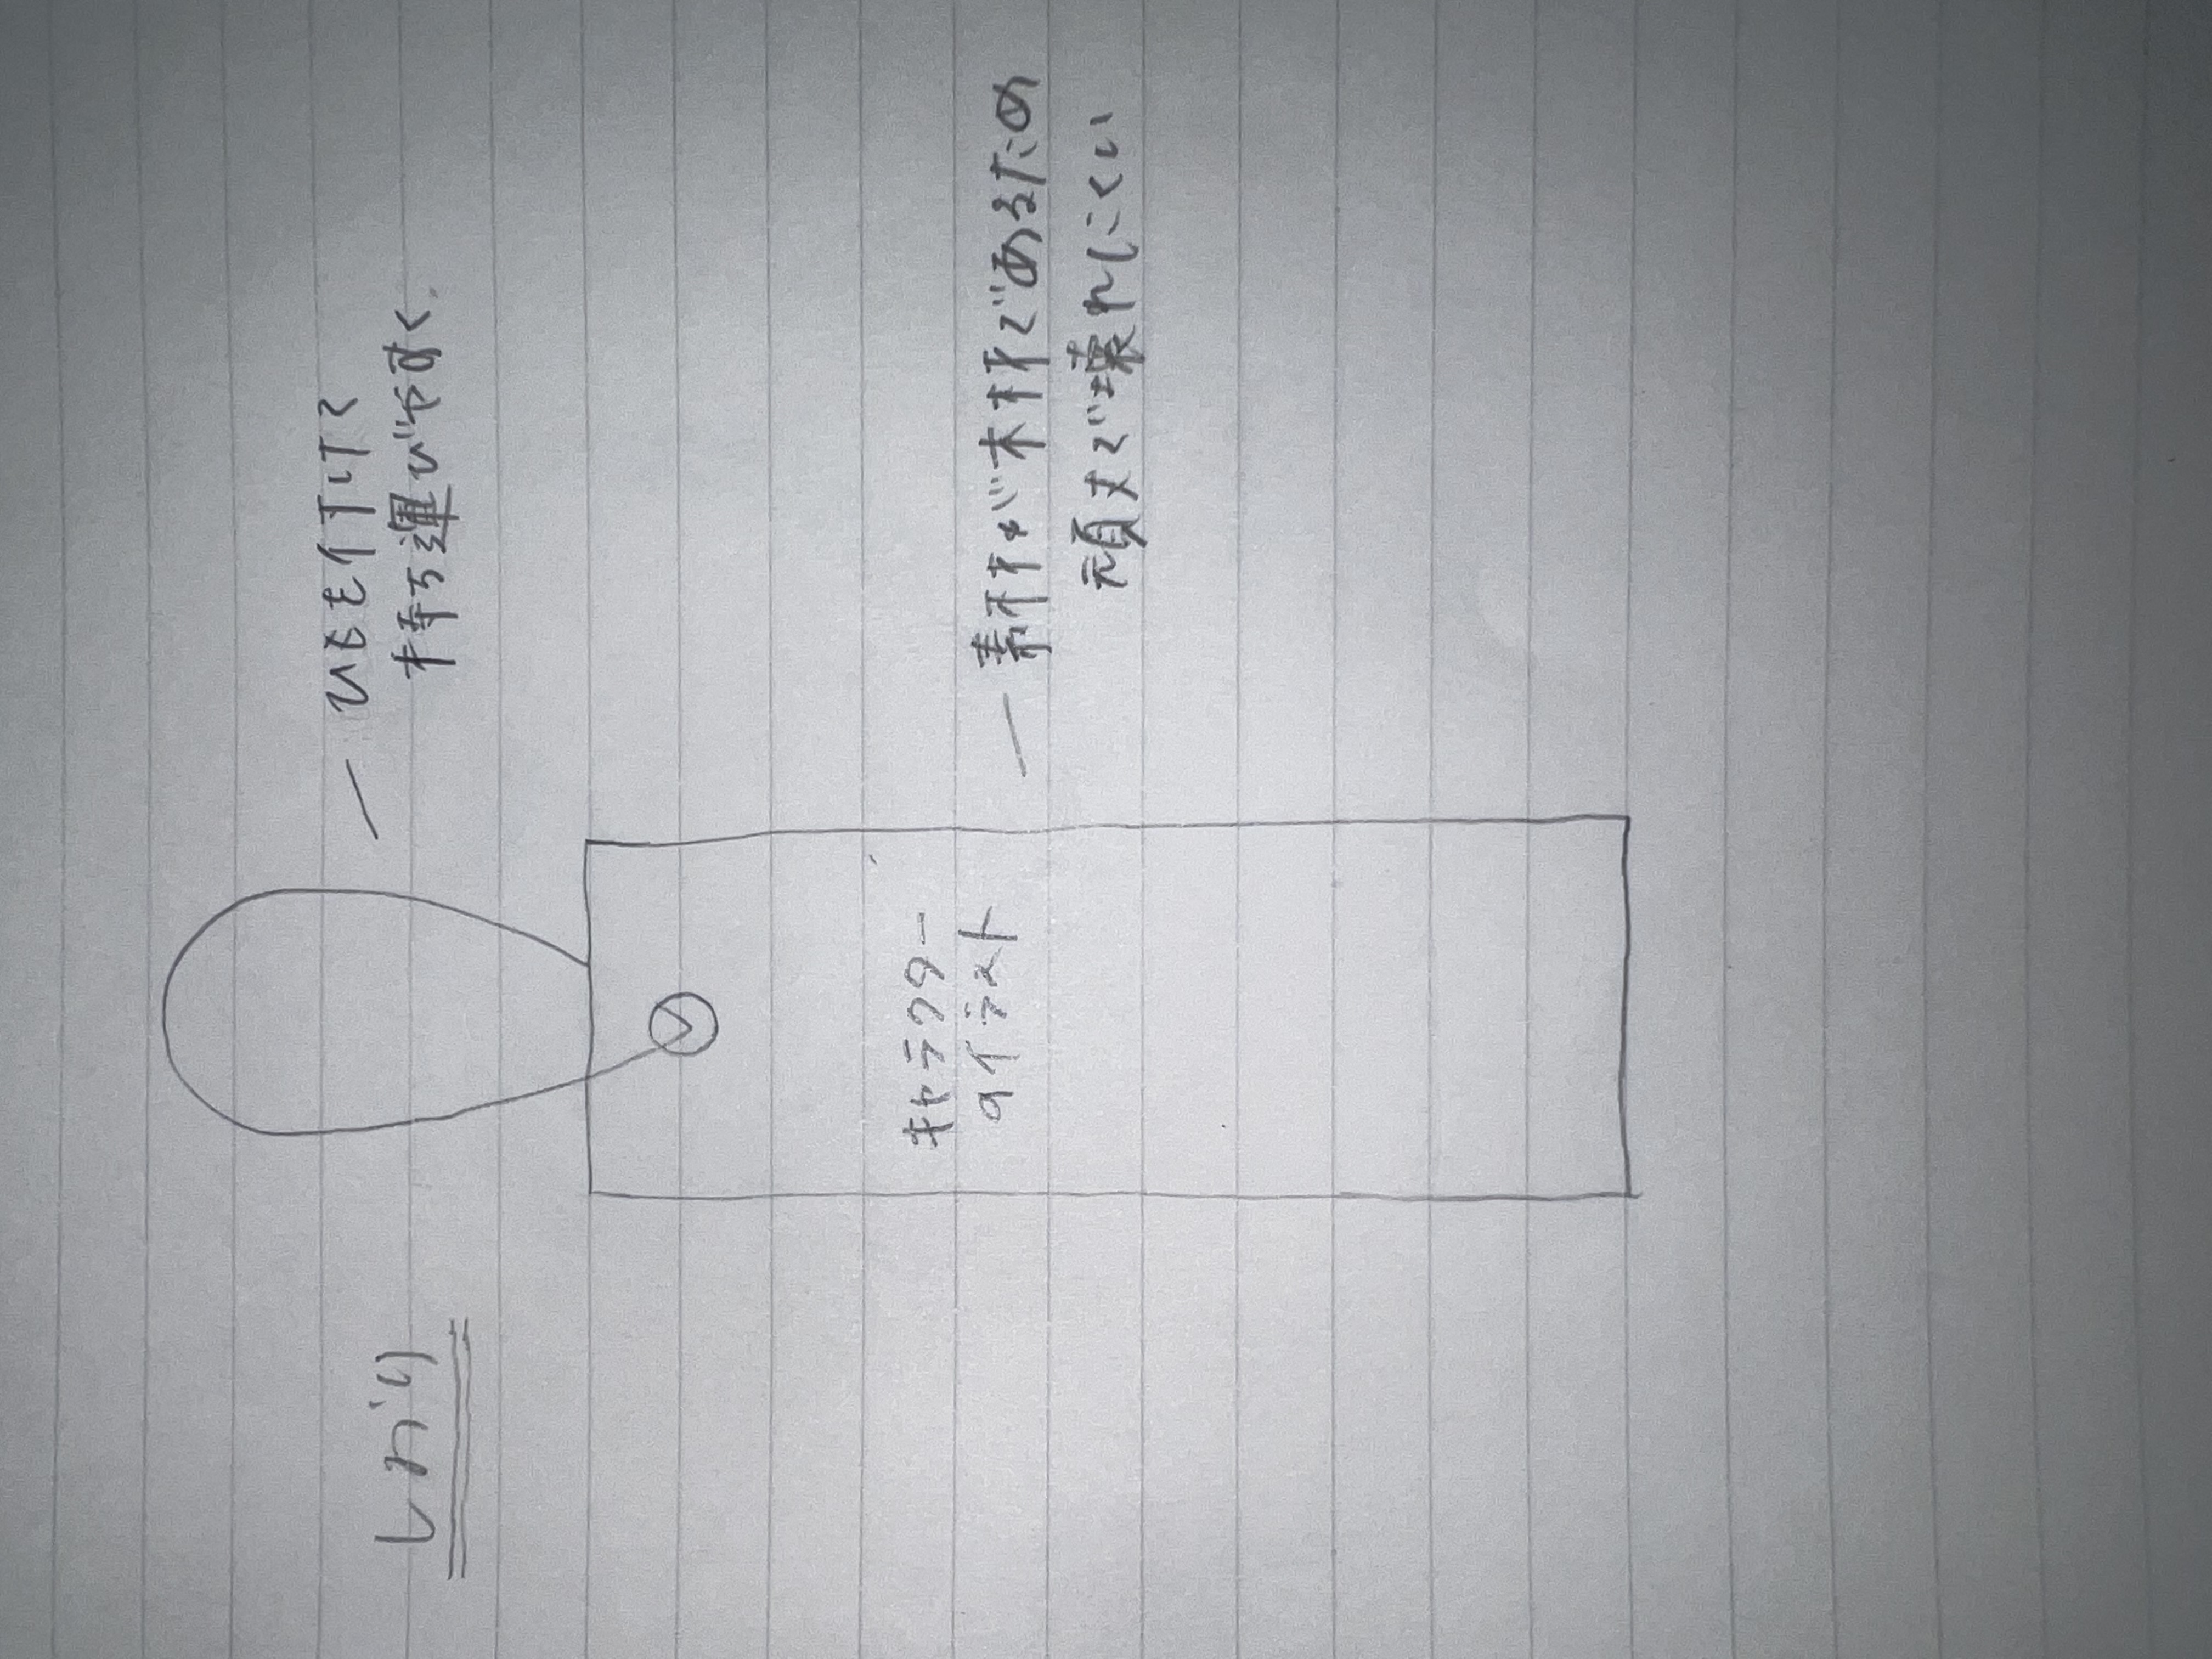 しおり
ひもを付けて
持ち運びやすく
キャラクター
のイラスト
素材が木材であるため
頑丈で壊れにくい